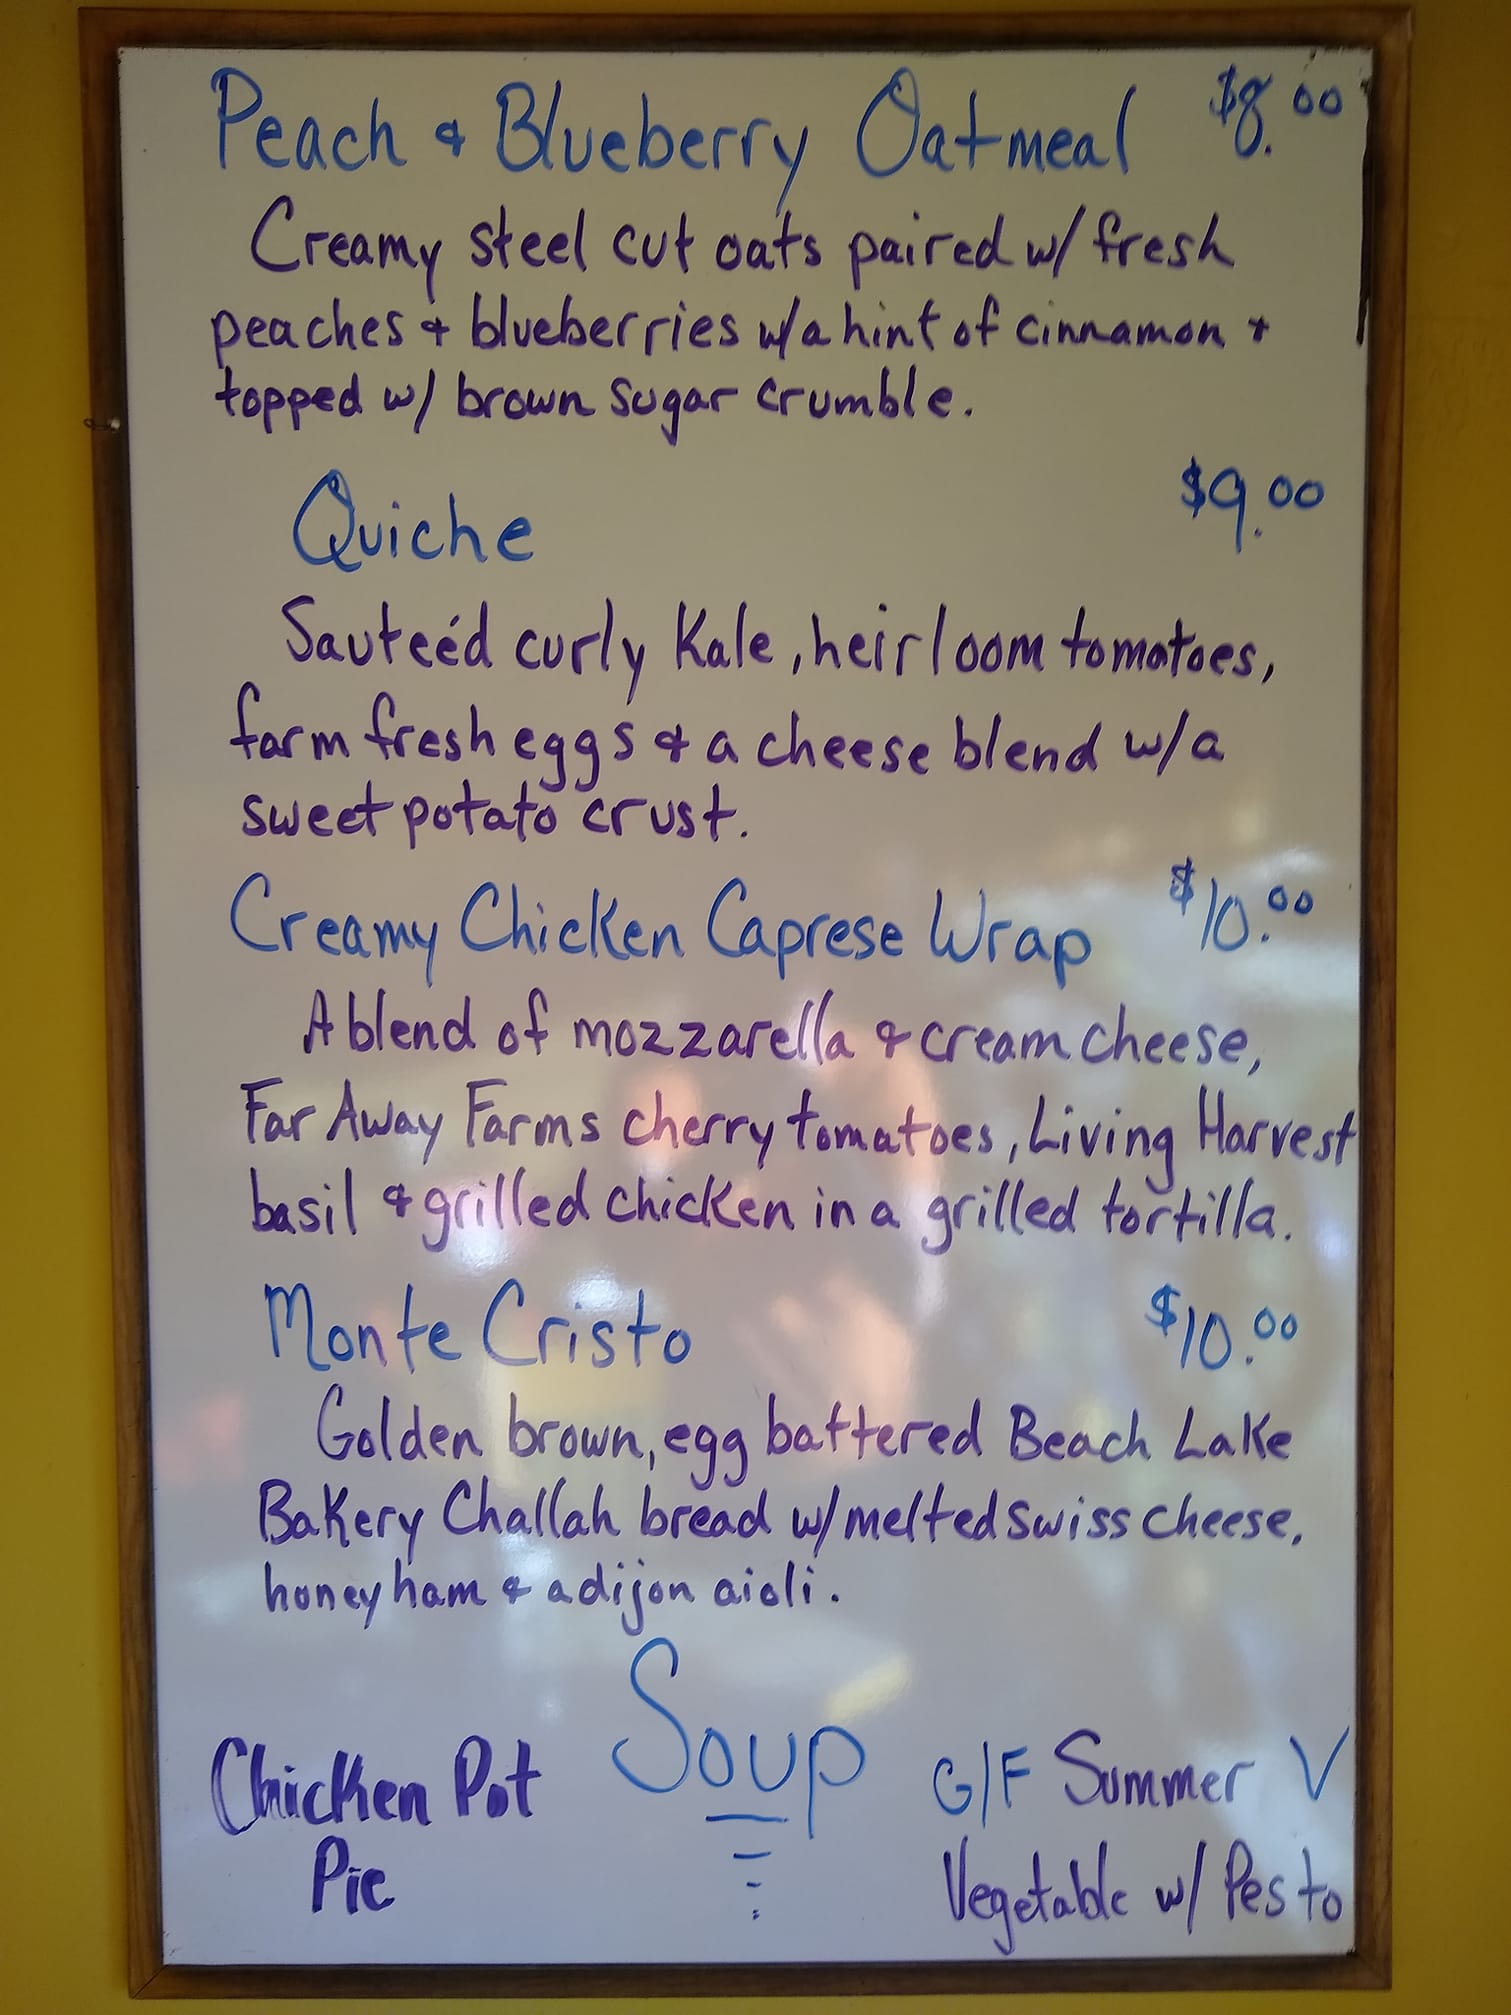 Peach & Blueberry Oatmeal $8.00
Creamy steel cut oats paired w/ fresh
peaches & blueberries w/a hint of cinnamon +
topped w/ brown sugar crumble.
Quiche $9.00
Sauteéd curly Kale, heirloom tomatoes,
farm fresh eggs & a cheese blend w/a
sweet potato crust.
Creamy Chicken Caprese Wrap $10.00
A blend of mozzarella & cream cheese,
Far Away Farms cherry tomatoes, Living Harvest
basil & grilled chicken in a grilled tortilla.
Monte Cristo $10.00
Golden brown, egg battered Beach Lake
Bakery Challah bread w/ melted swiss cheese,
honey ham & a dijon aioli.
Soup
Chicken Pot
Pie
G/F Summer V
Vegetable w/ Pesto